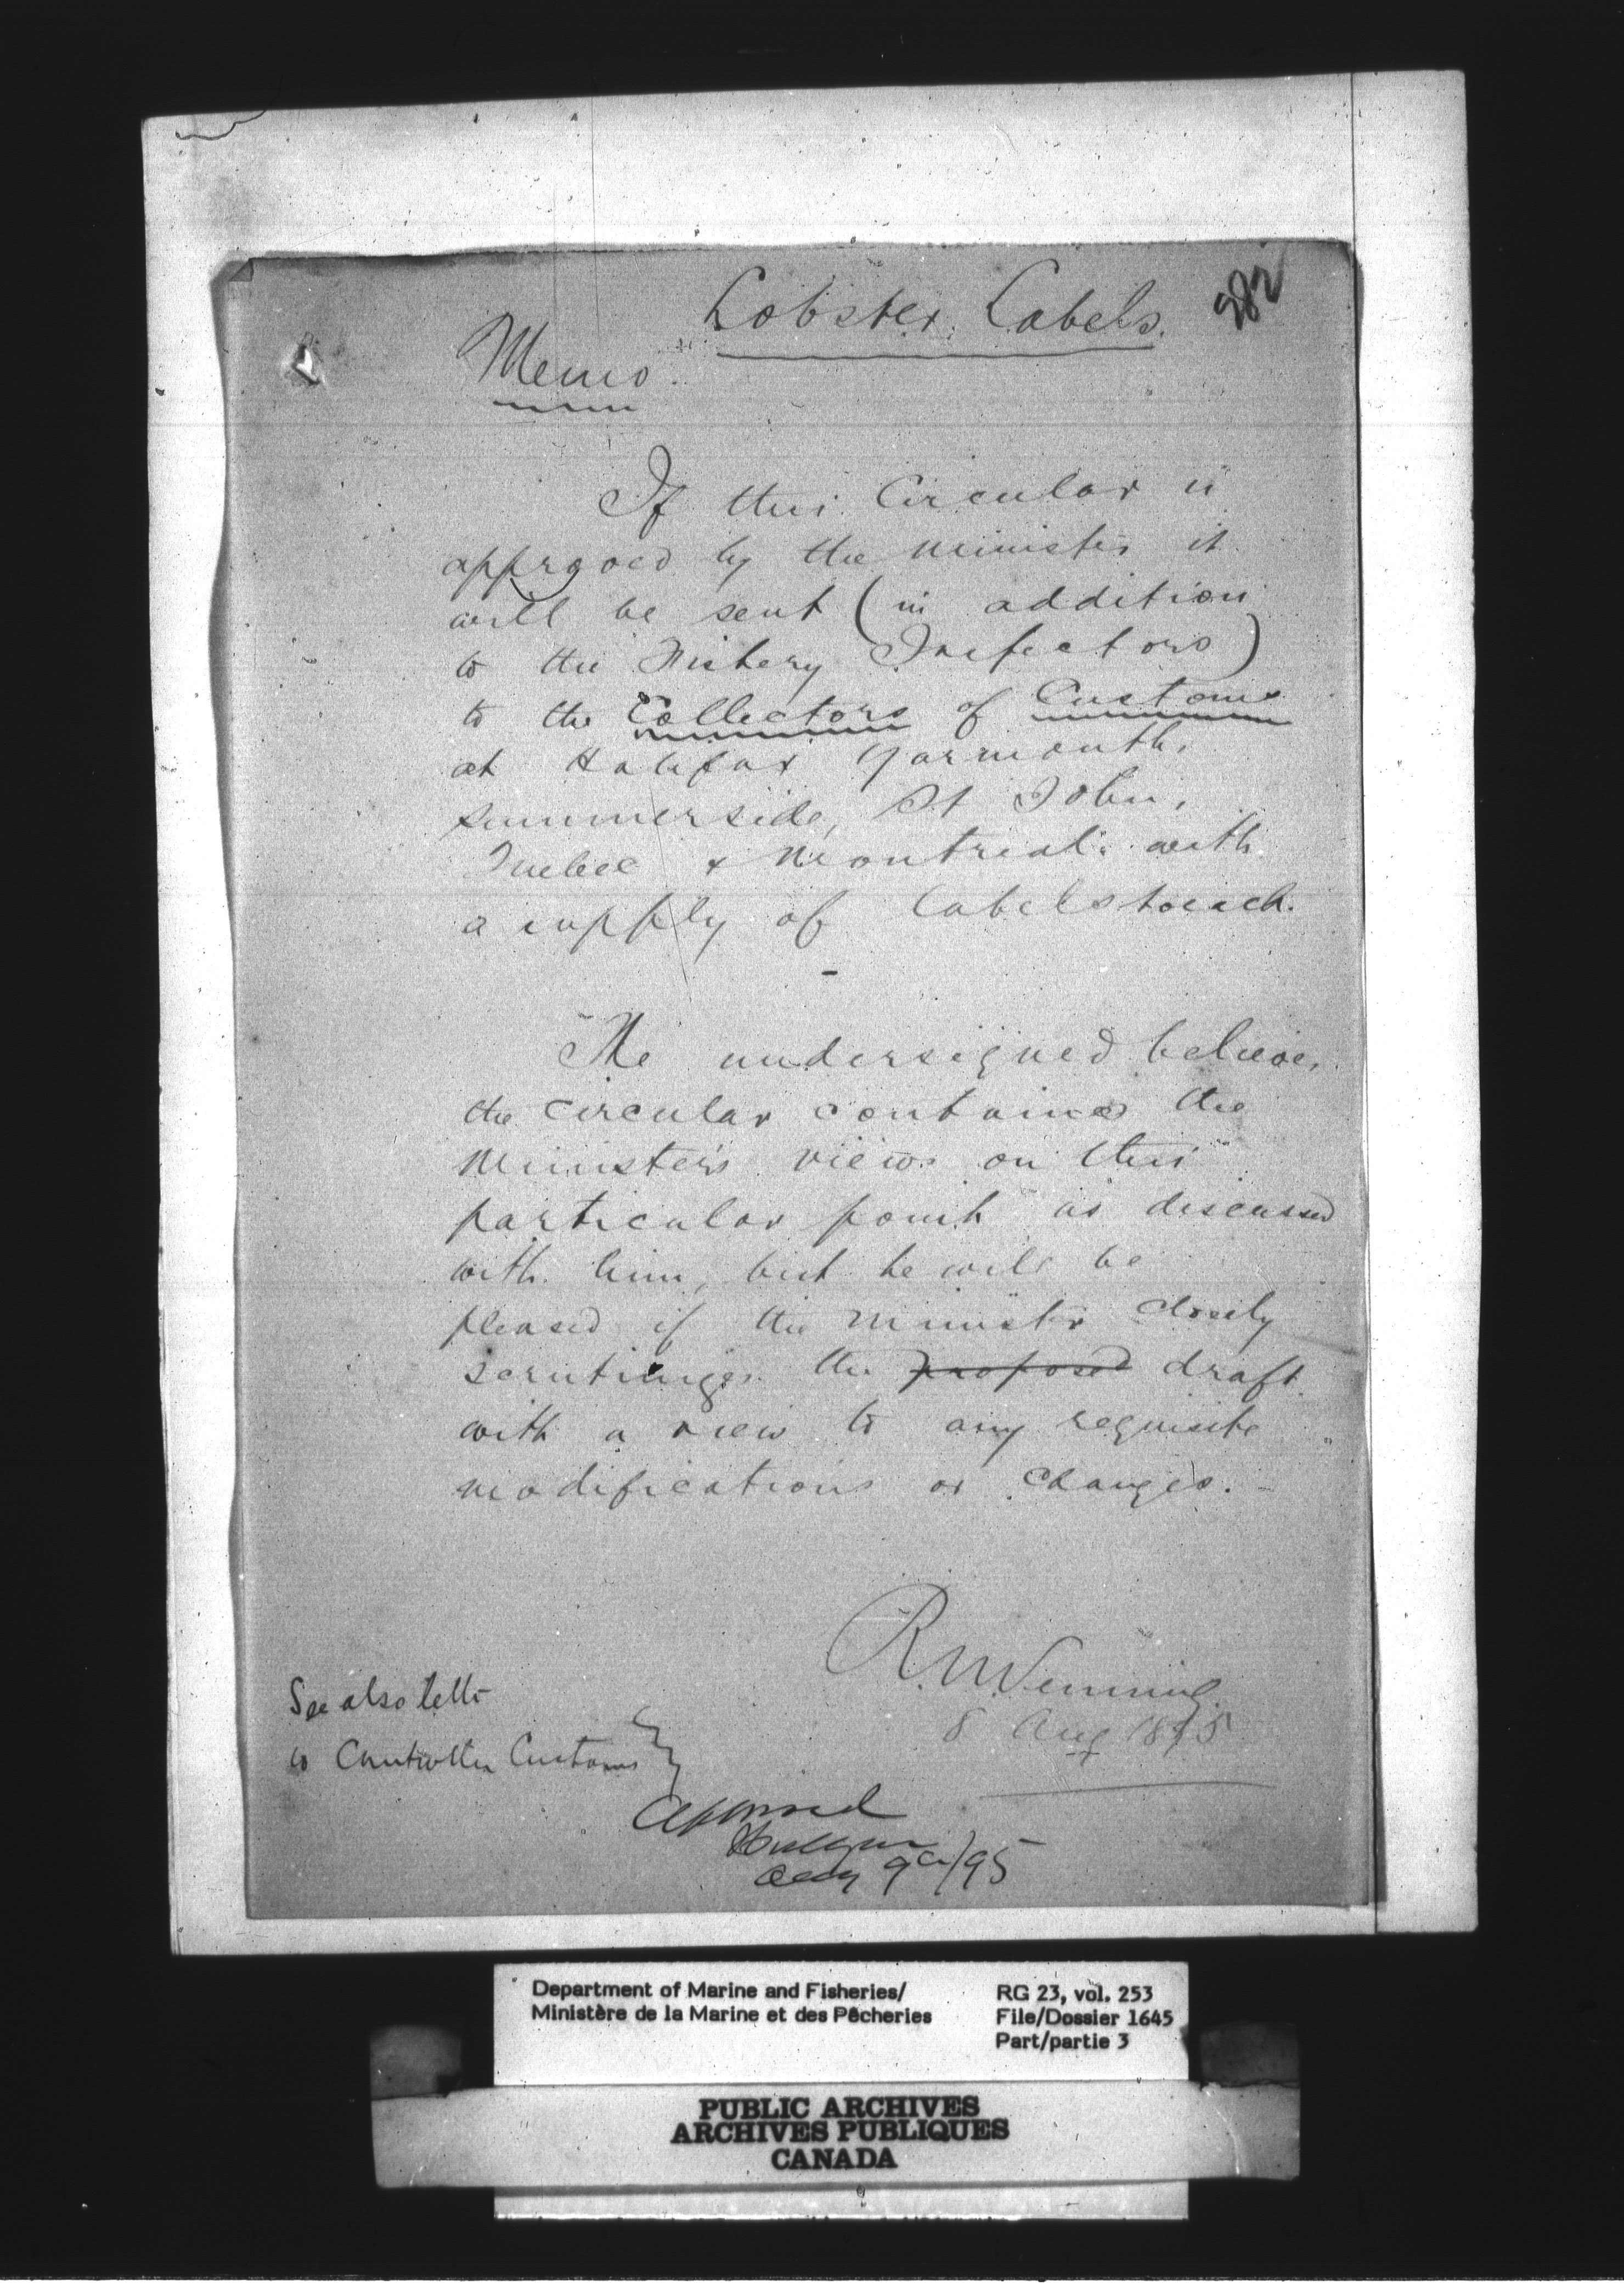 Lobster Labels.
382
Memo.
If this Circular is
approved by the Minister it
will be sent (in addition
to the Fishery Inspectors)
to the Collectors of Customs
at Halifax Yarmouth,
Summerside, St John,
Quebec & Montreal: with
a supply of labels to each.
The undersigned believes
the circular contains the
Minister's views on this
particular point as discussed
with him, but he will be
pleased if the Minister closely
scrutinizes the proposed draft
with a view to any requisite
modifications or changes.
R. N. Venning.
8 Aug 1895
See also letter
to Controller Customs
Approved
Aug 9th/95
Department of Marine and Fisheries/
Ministère de la Marine et des Pêcheries
RG 23, vol. 253
File/Dossier 1645
Part/partie 3
PUBLIC ARCHIVES
ARCHIVES PUBLIQUES
CANADA